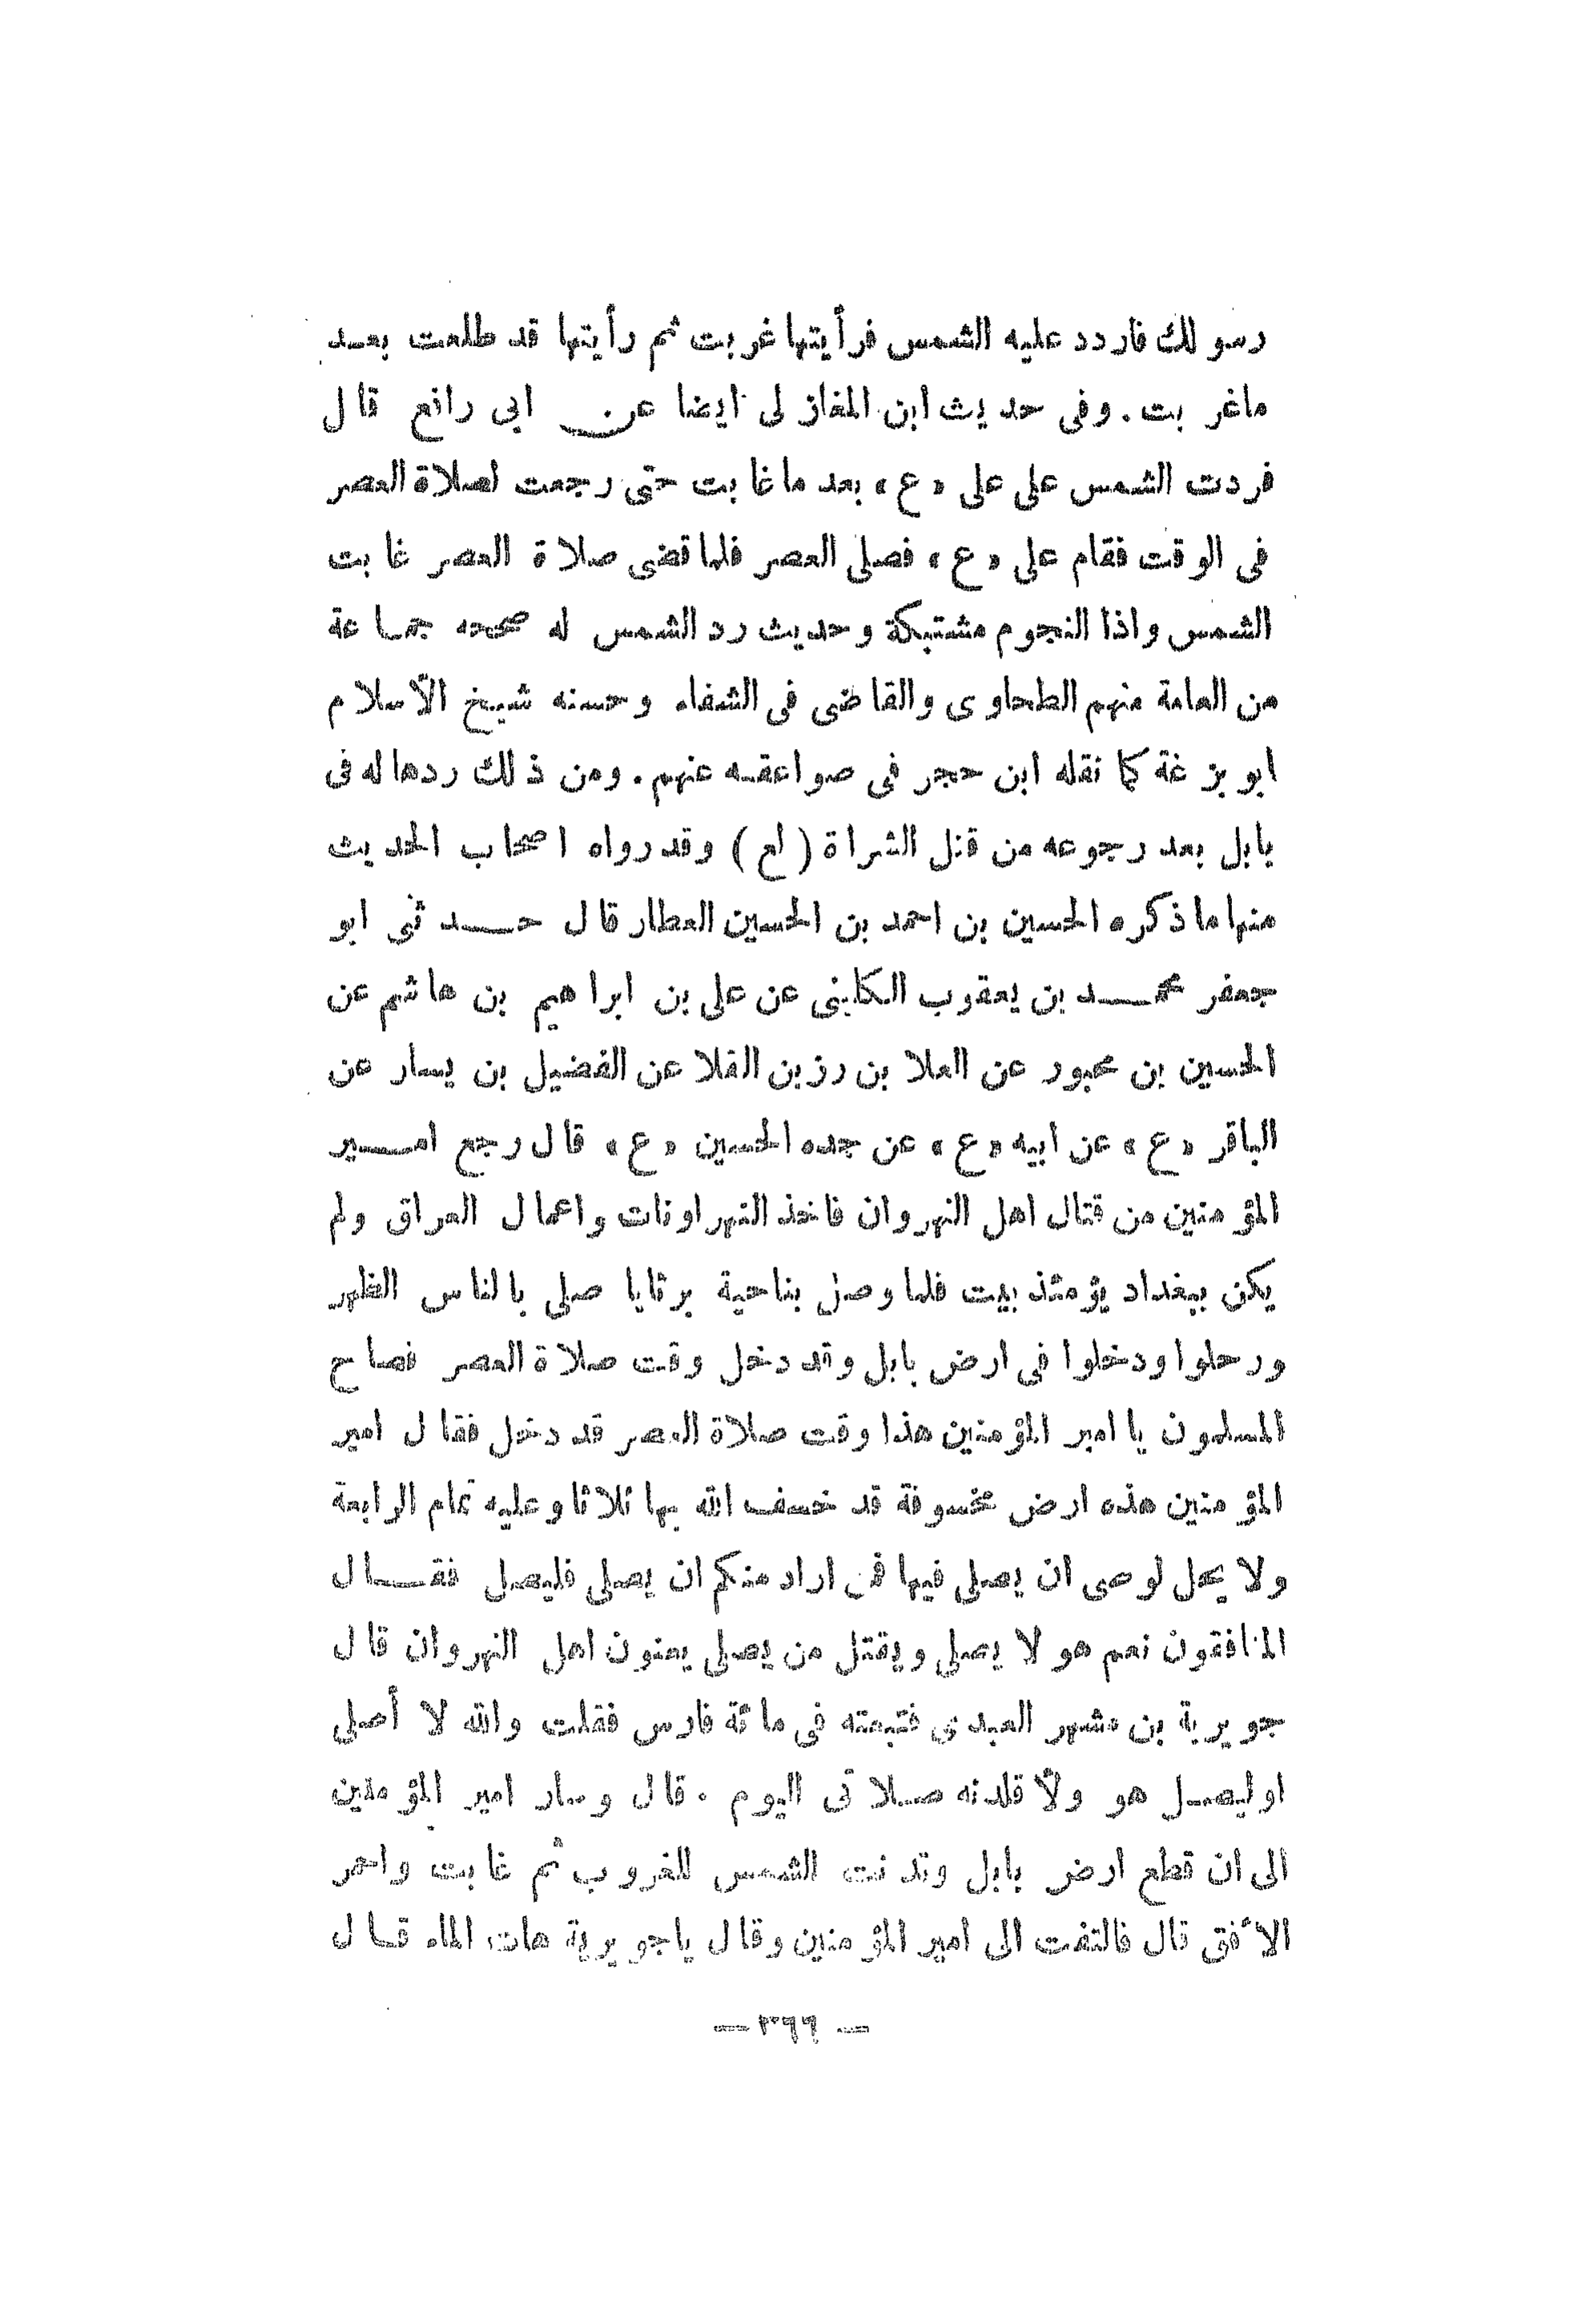 رسولك فاردد عليه الشمس فرأيتها غربت ثم رأيتها قد طلعت بعد
ماغربت . وفى حديث ابن المغازلى ايضا عن ابى رافع قال
فردت الشمس على على «ع» بعد ماغابت حتى رجعت لصلاة العصر
فى الوقت فقام على «ع» فصلى العصر فلما قضى صلاة العصر غابت
الشمس واذا النجوم مشتبكة وحديث رد الشمس له صححه جماعة
من العامة منهم الطحاوى والقاضى فى الشفاء وحسنه شيخ الأسلام
ابو بزغة كما نقله ابن حجر فى صواعقه عنهم . ومن ذلك ردها له فى
بابل بعد رجوعه من قتل الشراة ( لع ) وقد رواه اصحاب الحديث
منها ماذكره الحسين بن احمد بن الحسين العطار قال حدثنى ابو
جعفر محمد بن يعقوب الكلينى عن على بن ابراهيم بن هاشم عن
الحسين بن محبور عن العلا بن رزبن القلا عن الفضيل بن يسار عن
الباقر «ع» عن ابيه «ع» عن جده الحسين «ع» قال رجع امير
المؤمنين من قتال اهل النهروان فاخذ النهراونات واعمال العراق ولم
يكن ببغداد يؤمئذ بيت فلما وصل بناحية برثايا صلى بالناس الظهر
ورحلوا ودخلوا فى ارض بابل وقد دخل وقت صلاة العصر فصاح
المسلمون يا امير المؤمنين هذا وقت صلاة العصر قد دخل فقال امير
المؤمنين هذه ارض مخسوفة قد خسف الله بها ثلاثا وعليه تمام الرابعة
ولا يحل لوصى ان يصلى فيها فمن اراد منكم ان يصلى فليصل فقال
المنافقون نعم هو لا يصلى ويقتل من يصلى يعنون اهل النهروان قال
جويرية بن مشهر العبدى فتبعته فى مائة فارس فقلت والله لا أصلى
اوليصل هو ولأقلدنه صلاتى اليوم . قال وسار امير المؤمنين
الى ان قطع ارض بابل وتدنت الشمس للغروب ثم غابت واحمر
الأفق قال فالتفت الى امير المؤمنين وقال ياجويرية هات الماء قال
— ٣٦٦ —